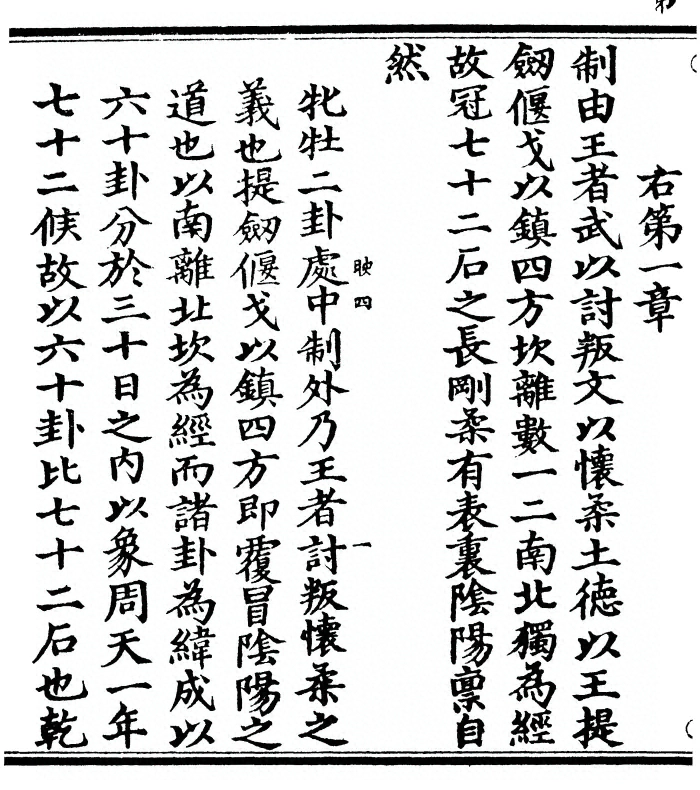 右第一章
制由王者武以討叛文以懷柔土德以王提
劒偃戈以鎮四方坎離數一二南北獨為經
故冠七十二石之長剛柔有表裏陰陽稟自
然
映四 一
牝牡二卦處中制外乃王者討叛懷柔之
義也提劒偃戈以鎮四方即覆冒陰陽之
道也以南離北坎為經而諸卦為緯成以
六十卦分於三十日之內以象周天一年
七十二候故以六十卦比七十二石也乾